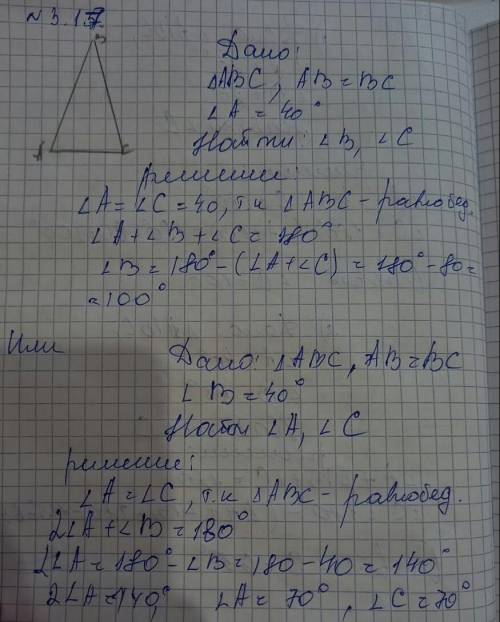 №3.17
B
A
C
Дано:
△ABC, AB=BC
∠A=40°
Найти: ∠B, ∠C
Решение:
∠A=∠C=40, т.к ∠ABC-равнобед.
∠A+∠B+∠C=180°
∠B=180°-(∠A+∠C)=180°-80=
=100°
Или
Дано: ∠ABC, AB=BC
∠B=40°
Найти ∠A, ∠C
решение:
∠A=∠C, т.к △ABC-равнобед.
2∠A+∠B=180°
2∠A=180°-∠B=180-40=140°
2∠A=140,° ∠A=70°, ∠C=70°